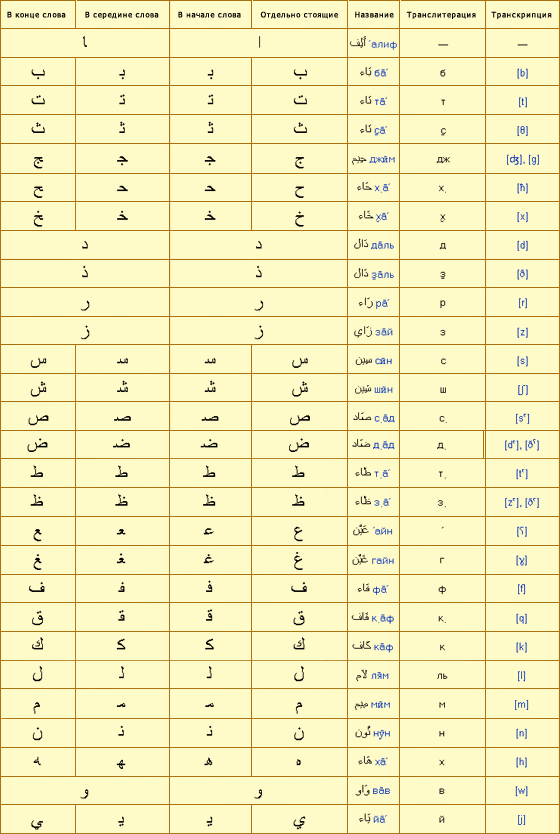 В конце слова В середине слова В начале слова Отдельно стоящие Название Транслитерация Транскрипция
ـا ا أَلِف ʾалиф — —
ـب ـبـ بـ ب بَاء ба̄ʾ б [b]
ـت ـتـ تـ ت تَاء та̄ʾ т [t]
ـث ـثـ ثـ ث ثَاء с̱а̄ʾ с̱ [θ]
ـج ـجـ جـ ج جِيم джӣм дж [ʤ], [g]
ـح ـحـ حـ ح حَاء х̣а̄ʾ х̣ [ħ]
ـخ ـخـ خـ خ خَاء х̮а̄ʾ х̮ [x]
د د دَال да̄ль д [d]
ذ ذ ذَال з̱а̄ль з̱ [ð]
ر ر رَاء ра̄ʾ р [r]
ز ز زَاي за̄й з [z]
ـس ـسـ سـ س سِين сӣн с [s]
ـش ـشـ شـ ش شِين шӣн ш [ʃ]
ـص ـصـ صـ ص صَاد с̣а̄д с̣ [sˤ]
ـض ـضـ ضـ ض ضَاد д̣а̄д д̣ [dˤ], [ðˤ]
ـط ـطـ طـ ط طَاء т̣а̄ʾ т̣ [tˤ]
ـظ ـظـ ظـ ظ ظَاء з̣а̄ʾ з̣ [zˤ], [ðˤ]
ـع ـعـ عـ ع عَيْن ʿайн ʿ [ʕ]
ـغ ـغـ غـ غ غَيْن гайн г [ɣ]
ـف ـفـ فـ ف فَاء фа̄ʾ ф [f]
ـق ـقـ قـ ق قَاف к̣а̄ф к̣ [q]
ـك ـكـ كـ ك كَاف ка̄ф к [k]
ـل ـلـ لـ ل لاَم ля̄м ль [l]
ـم ـمـ مـ م مِيم мӣм м [m]
ـن ـنـ نـ ن نُون нӯн н [n]
ـه ـهـ هـ ه هَاء ха̄ʾ х [h]
و و وَاو ва̄в в [w]
ـي ـيـ يـ ي يَاء йа̄ʾ й [j]